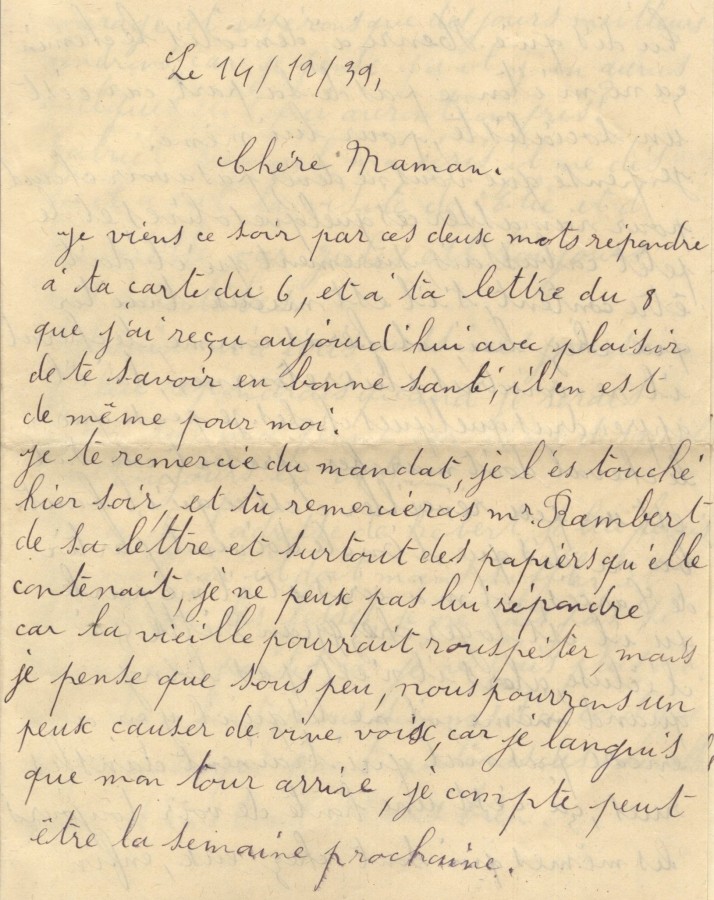 Le 14/12/39,
Chére Maman.
je viens ce soir par ces deux mots répondre
á ta carte du 6, et á ta lettre du 8
que j'ai reçu aujourd'hui avec plaisir
de te savoir en bonne santé, il en est
de même pour moi.
je te remercie du mandat, je l'és touché
hier soir, et tu remercieras mr. Rambert
de sa lettre et surtout des papiers qu'elle
contenait, je ne peux pas lui répondre
car ta vieille pourrait rouspéter, mais
je pense que sous peu, nous pourrons un
peux causer de vive voix, car je languis
que mon tour arrive, je compte peut
être la semaine prochaine.